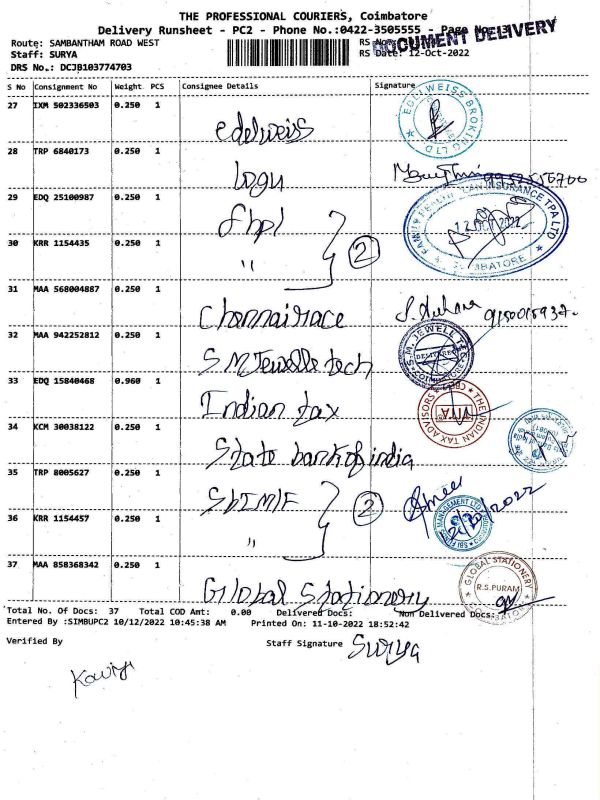 THE PROFESSIONAL COURIERS, Coimbatore
Delivery Runsheet - PC2 - Phone No.:0422-3505555 - Page No.: 3
DOCUMENT DELIVERY
Route: SAMBANTHAM ROAD WEST
Staff: SURYA RS Date: 12-Oct-2022
DRS No.: DCJB103774703
S No Consignment No Weight PCS Consignee Details Signature
27 IXM 502336503 0.250 1
edelweiss
EDELWEISS BROKING LTD
28 TRP 6840173 0.250 1
Logu
29 EDQ 25100987 0.250 1
fhpl
FAMILY HEALTH PLAN INSURANCE TPA LTD
12 OCT 2022
COIMBATORE
30 KRR 1154435 0.250 1
" 2
31 MAA 568004887 0.250 1
Chennairace
32 MAA 942252812 0.250 1
S M Jewelle tech
S.M. JEWELL TEC
COIMBATORE
33 EDQ 15840468 0.960 1
Indian tax
THE INDIAN TAX ADVISORS
ITA
34 KCM 30038122 0.250 1
State bank of india
35 TRP 8005627 0.250 1
SbIMF 2
36 KRR 1154457 0.250 1
"
37 MAA 858368342 0.250 1
Global Stationery
GLOBAL STATIONERY
R.S.PURAM
COIMBATORE
Total No. Of Docs: 37 Total COD Amt: 0.00 Delivered Docs: Non Delivered Docs:
Entered By :SIMBUPC2 10/12/2022 10:45:38 AM Printed On: 11-10-2022 18:52:42
Verified By Staff Signature Surya